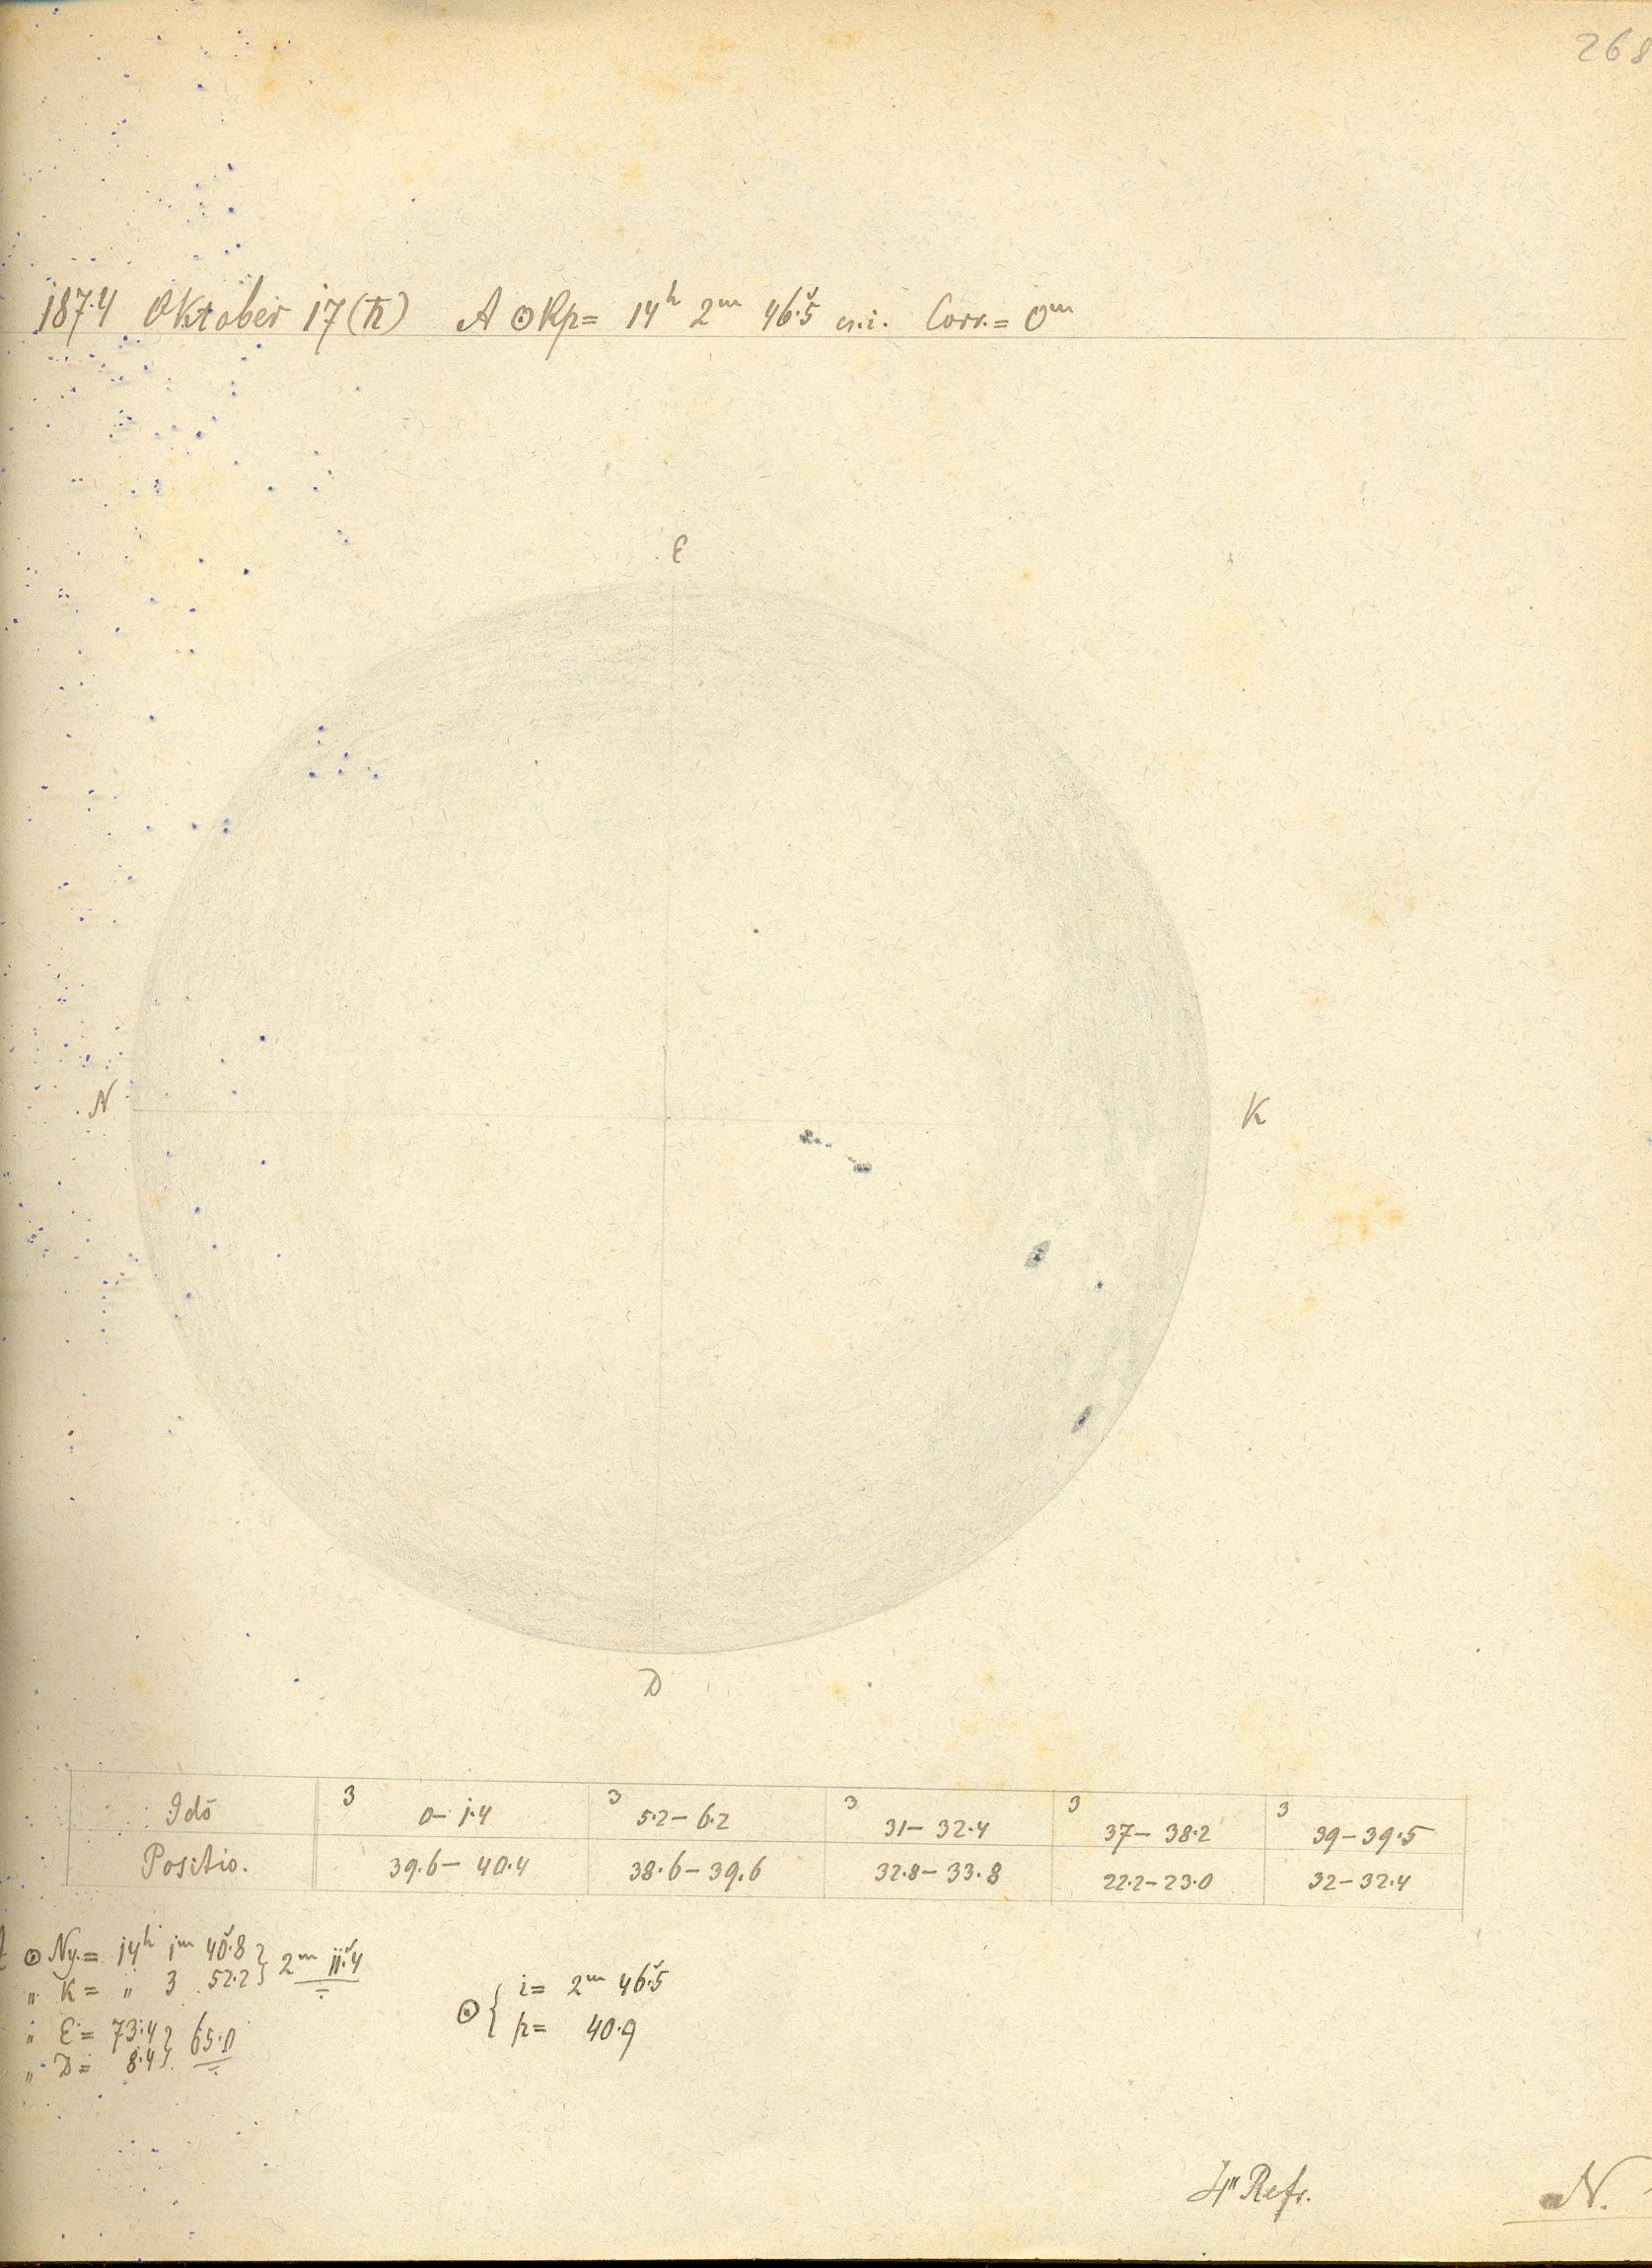 268
1874 Oktober 17 (♄) A ☉ Kp = 14h 2m 46.5s cs.i. Corr. = 0m
E
N
K
D
Idő 3 0 – 1.4 3 5.2 – 6.2 3 31 – 32.4 3 37 – 38.2 3 39 – 39.5
Positio. 39.6 – 40.4 38.6 – 39.6 32.8 – 33.8 22.2 – 23.0 32 – 32.4
☉ Ny. = 14h 1m 40.8s } 2m 11.4s
" K = " 3 52.2 }
" E = 73.4 } 65.0
" D = 8.4 }
☉ { i = 2m 46.5s
p = 40.9
4" Refr.
N.